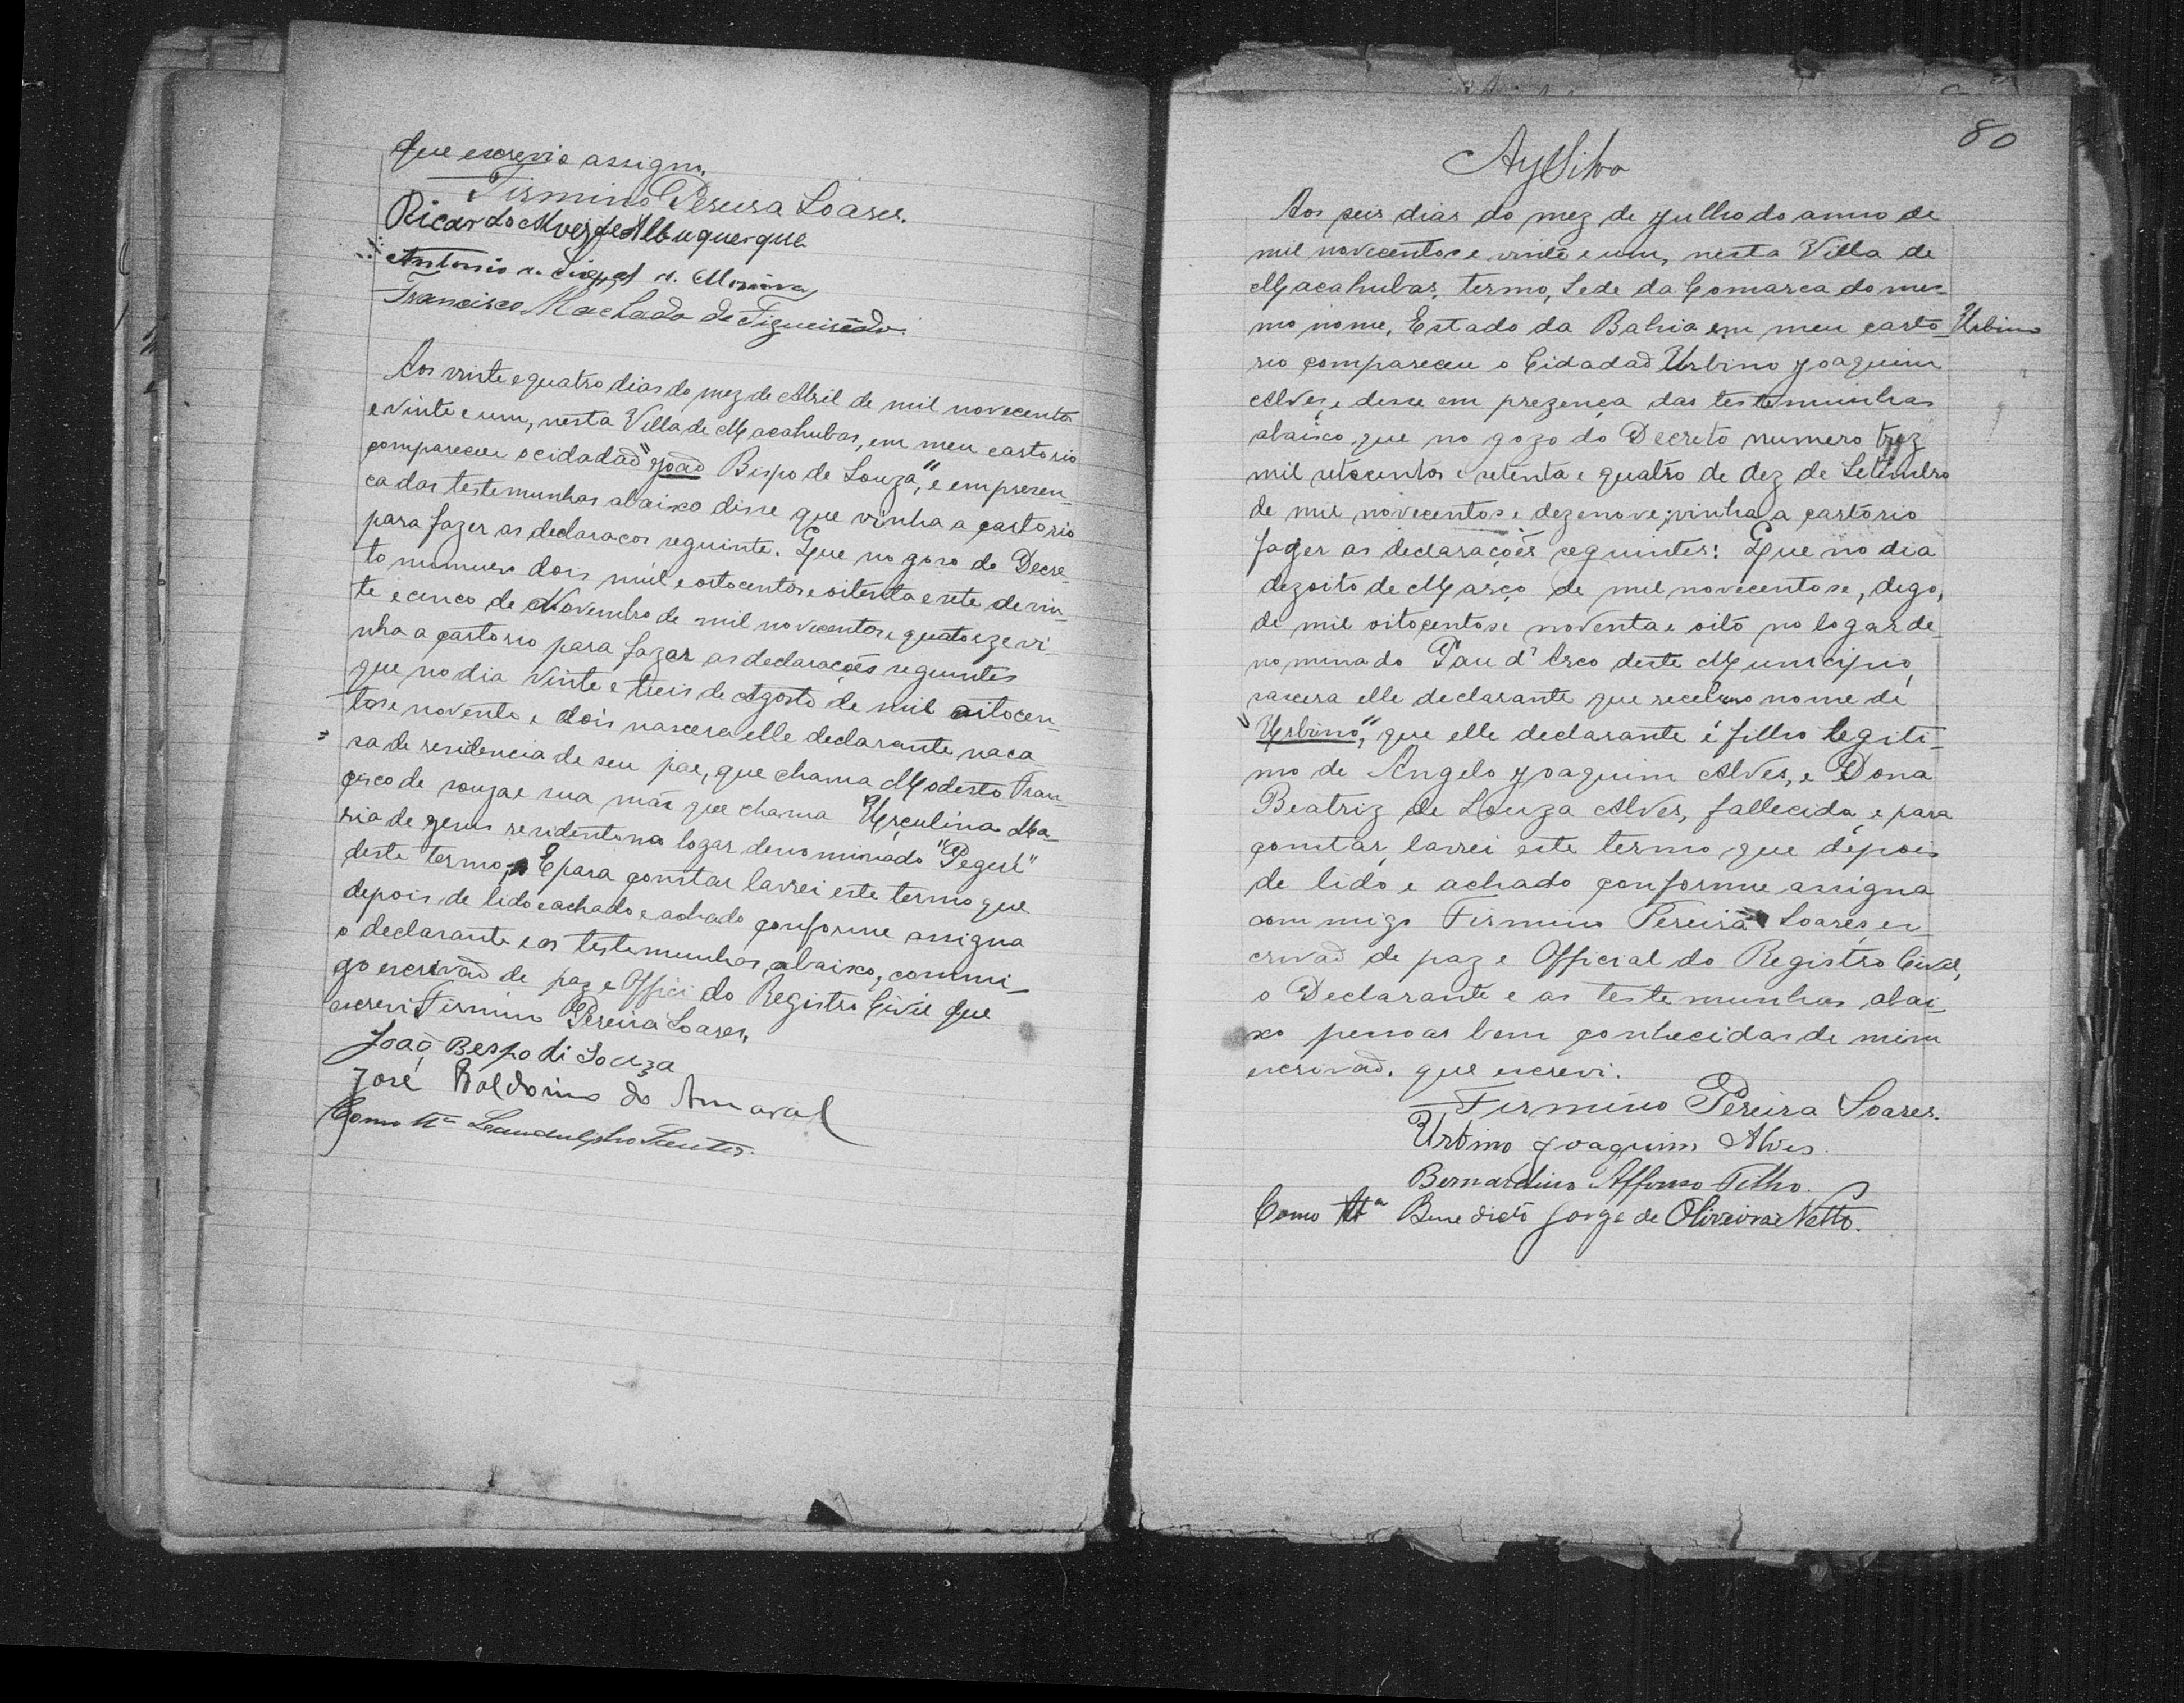 que escrevi e assigno.
Firmino Pereira Soares.
Ricardo Alves de Albuquerque
Antonio
Francisco Machado de Figueirêdo.
Aos vinte e quatro dias do mez de Abril de mil novecentos
e vinte e um, nesta Villa de Macahubas, em meu cartorio
compareceu o cidadaõ "Joaõ Bispo de Souza," e em presen-
ca das testemunhas abaixo disse que vinha a cartorio
para fazer as declaracos seguinte. Que no goso do Decre-
to numero dois mil e oitocentos e oitenta e sete de vin-
te e cinco de Novembro de mil novecentos e quatorze vi-
nha a cartorio para fazer as declarações seguintes
que no dia vinte e treis de Agosto de mil oitocen-
tos e noventa e dois nascera elle declarante na ca-
sa de residencia de seu pae, que chama Modesto Fran-
cisco de souza e sua mãe que chama Urçulina Ma-
ria de Jesus residente no logar denominado "Pegui"
deste termo, E para constar lavrei este termo que
depois de lido e achado e achado conforme assigna
o declarante e as testemunhas abaixo, commi-
go escrivaõ de paz e Offici do Registro Civil que
escrevi Firmino Pereira Soares,
João Bespo di Souza
José Baldoino do Amaral
Como tta Leandulpho Santos.
80
AySilva
Aos seis dias do mez de Julho do anno de
mil novecentos e vinte e um, nesta Villa de
Macahubas, termo, Sede da Comarca do mes-
mo nome, Estado da Bahia em meu carto-
Urbino
rio compareceu o Cidadaõ Urbino Joaquim
Alves, e disse em prezença das testemunhas
abaixo que no gozo do Decreto numero trez
mil setecentos e setenta e quatro de dez de Setembro
de mil novecentos e dezenove, vinha a cartorio
fazer as declarações seguintes: Que no dia
dezoito de Março de mil novecentos e, digo,
de mil oitocentos e noventa e oito no logar de-
nominado Pau d'Arco deste Municipio,
nascera elle declarante que recebeu o nome de
"Urbino", que elle declarante é filho legiti-
mo de Angelo Joaquim Alves, e Dona
Beatriz de Souza Alves, fallecida e para
constar, lavrei este termo que depois
de lido e achado conforme assigna
commigo Firmino Pereira Soares, es-
crivaõ de paz e Official do Registro Civil,
o Declarante e as testemunhas abai-
xo pessoas bem conhecidas de mim
escrivaõ, que escrevi.
Firmino Pereira Soares.
Urbino Joaquim Alves.
Bernardino Affonso Filho.
Como tta Benedicto Jorge de Oliveira Netto.